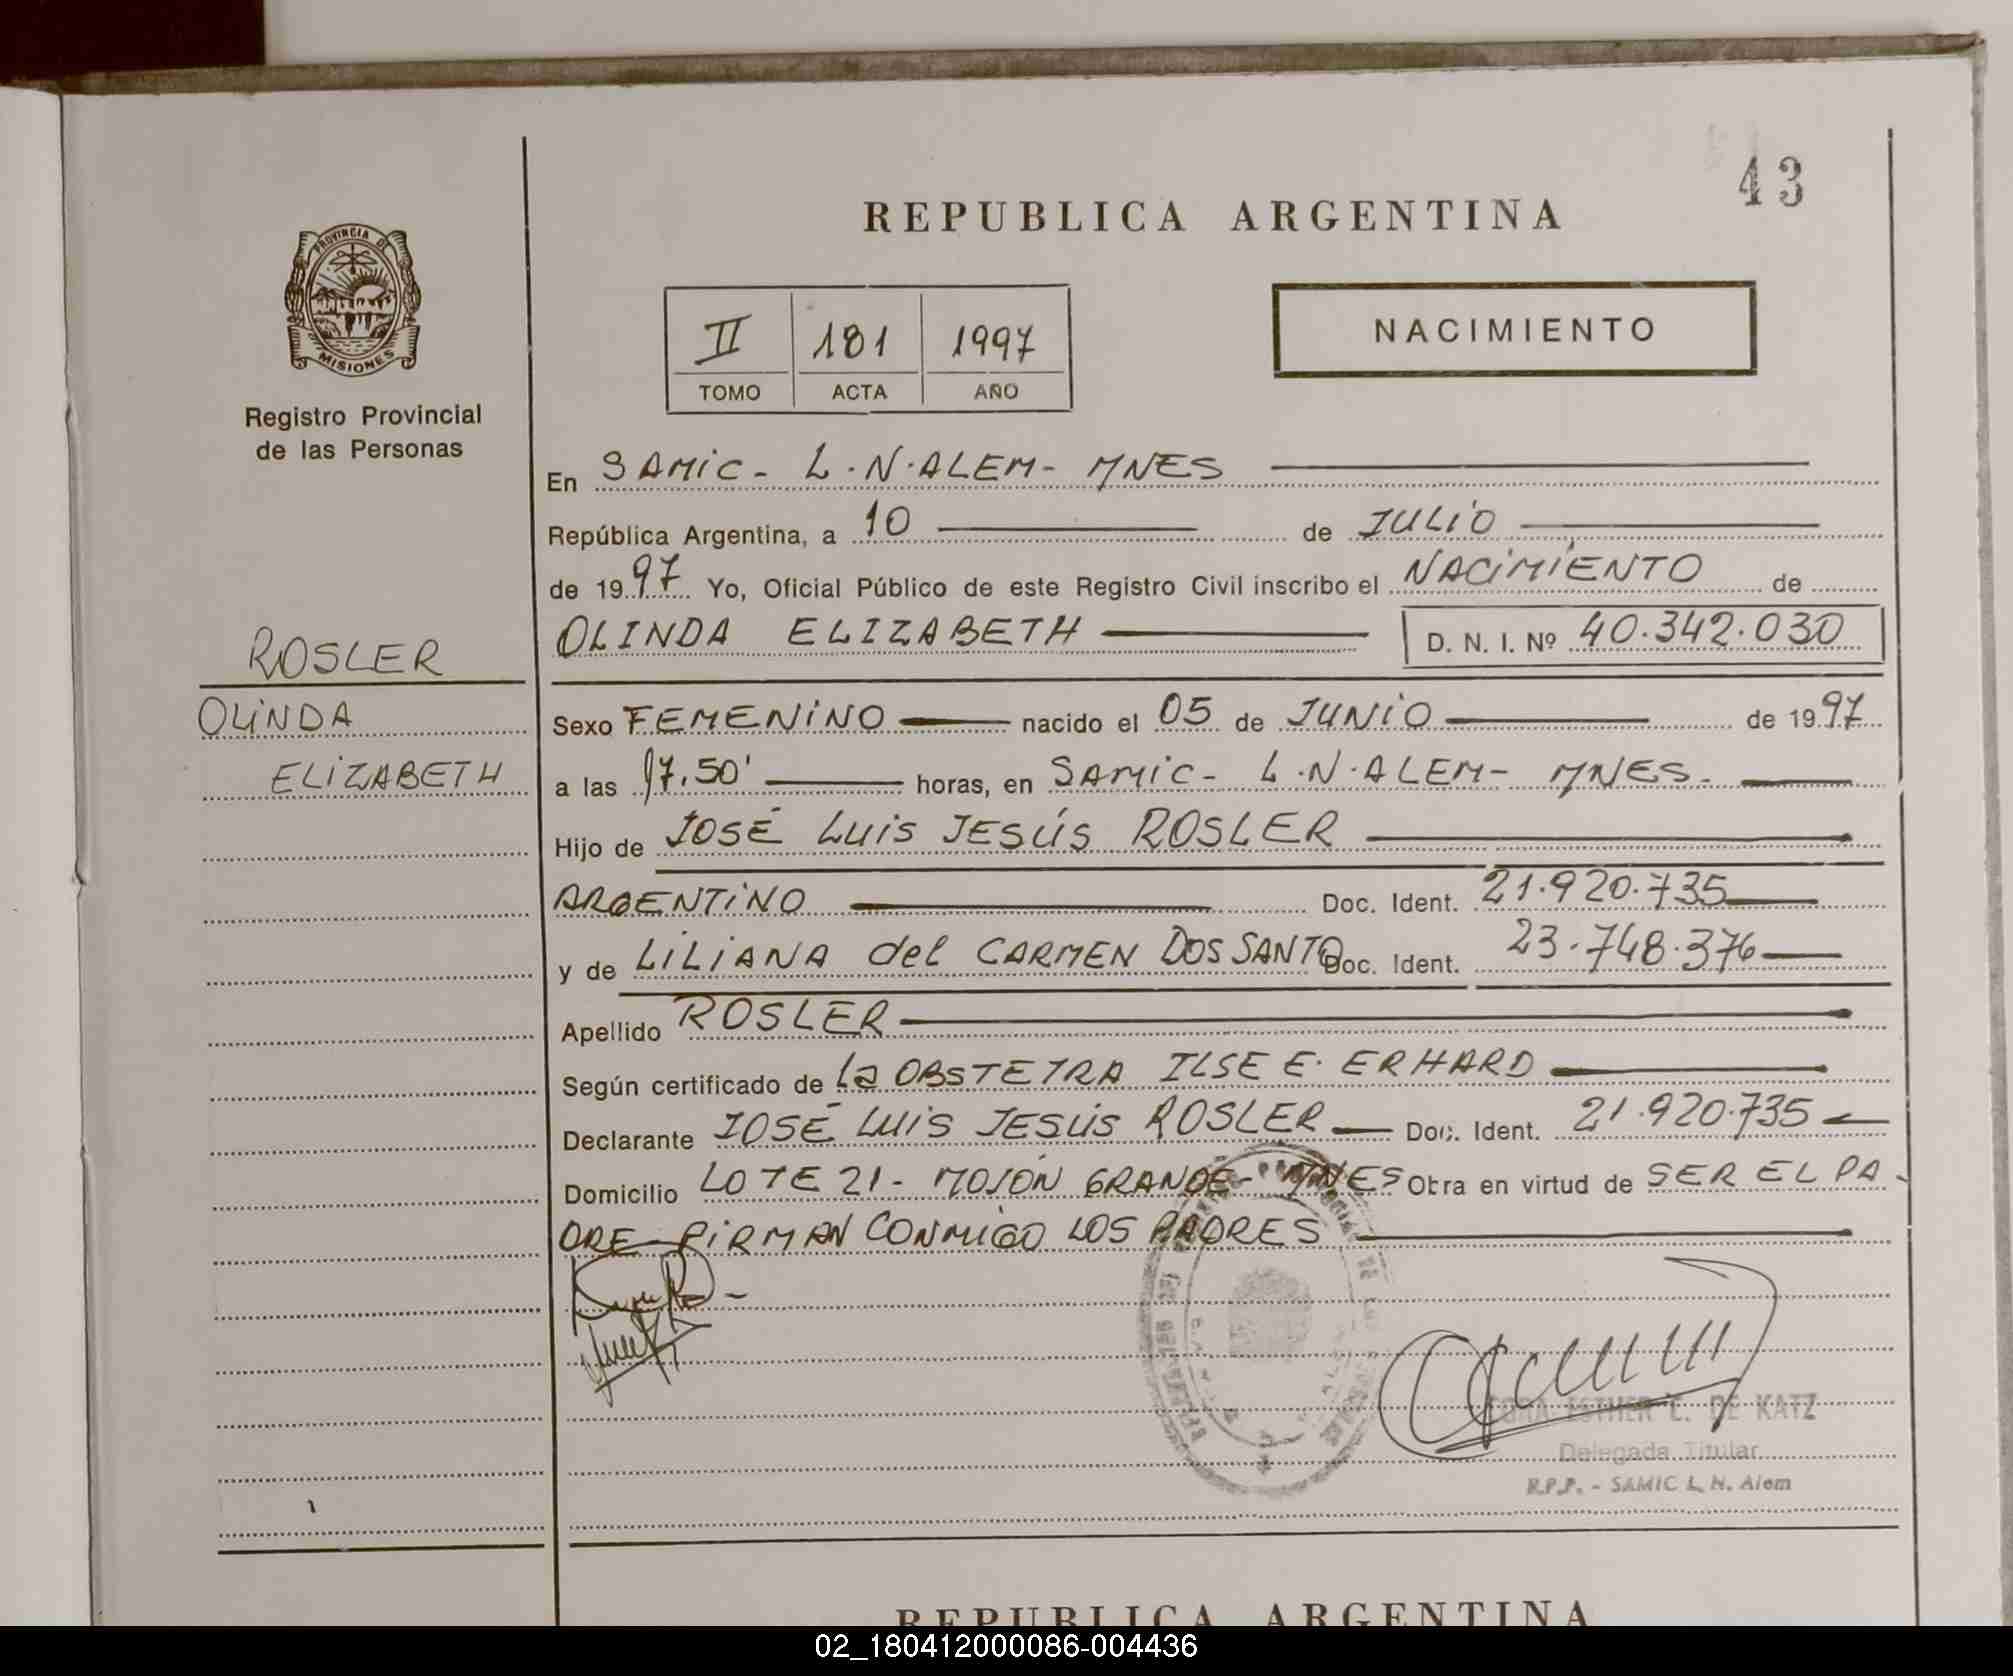 43
REPUBLICA ARGENTINA
PROVINCIA DE
MISIONES
Registro Provincial
de las Personas
II 181 1997
TOMO ACTA AÑO
NACIMIENTO
En SAMIC - L.N.ALEM - MNES
República Argentina, a 10 de JULIO
de 1997 Yo, Oficial Público de este Registro Civil inscribo el NACIMIENTO de
OLINDA ELIZABETH D. N. I. Nº 40.342.030
ROSLER
OLINDA
ELIZABETH
Sexo FEMENINO nacido el 05 de JUNIO de 1997
a las 17.50' horas, en SAMIC - L.N.ALEM - MNES.
Hijo de JOSÉ LUIS JESÚS ROSLER
ARGENTINO Doc. Ident. 21.920.735
y de LILIANA del CARMEN DOS SANTOS Doc. Ident. 23.748.376
Apellido ROSLER
Según certificado de la OBSTETRA ILSE E. ERHARD
Declarante JOSÉ LUIS JESÚS ROSLER Doc. Ident. 21.920.735
Domicilio LOTE 21 - MOJÓN GRANDE - MNES Obra en virtud de SER EL PA-
DRE - FIRMAN CONMIGO LOS PADRES
ESTHER L. DE KATZ
Delegada Titular
R.P.P. - SAMIC L. N. Alem
REPUBLICA ARGENTINA
02_180412000086-004436